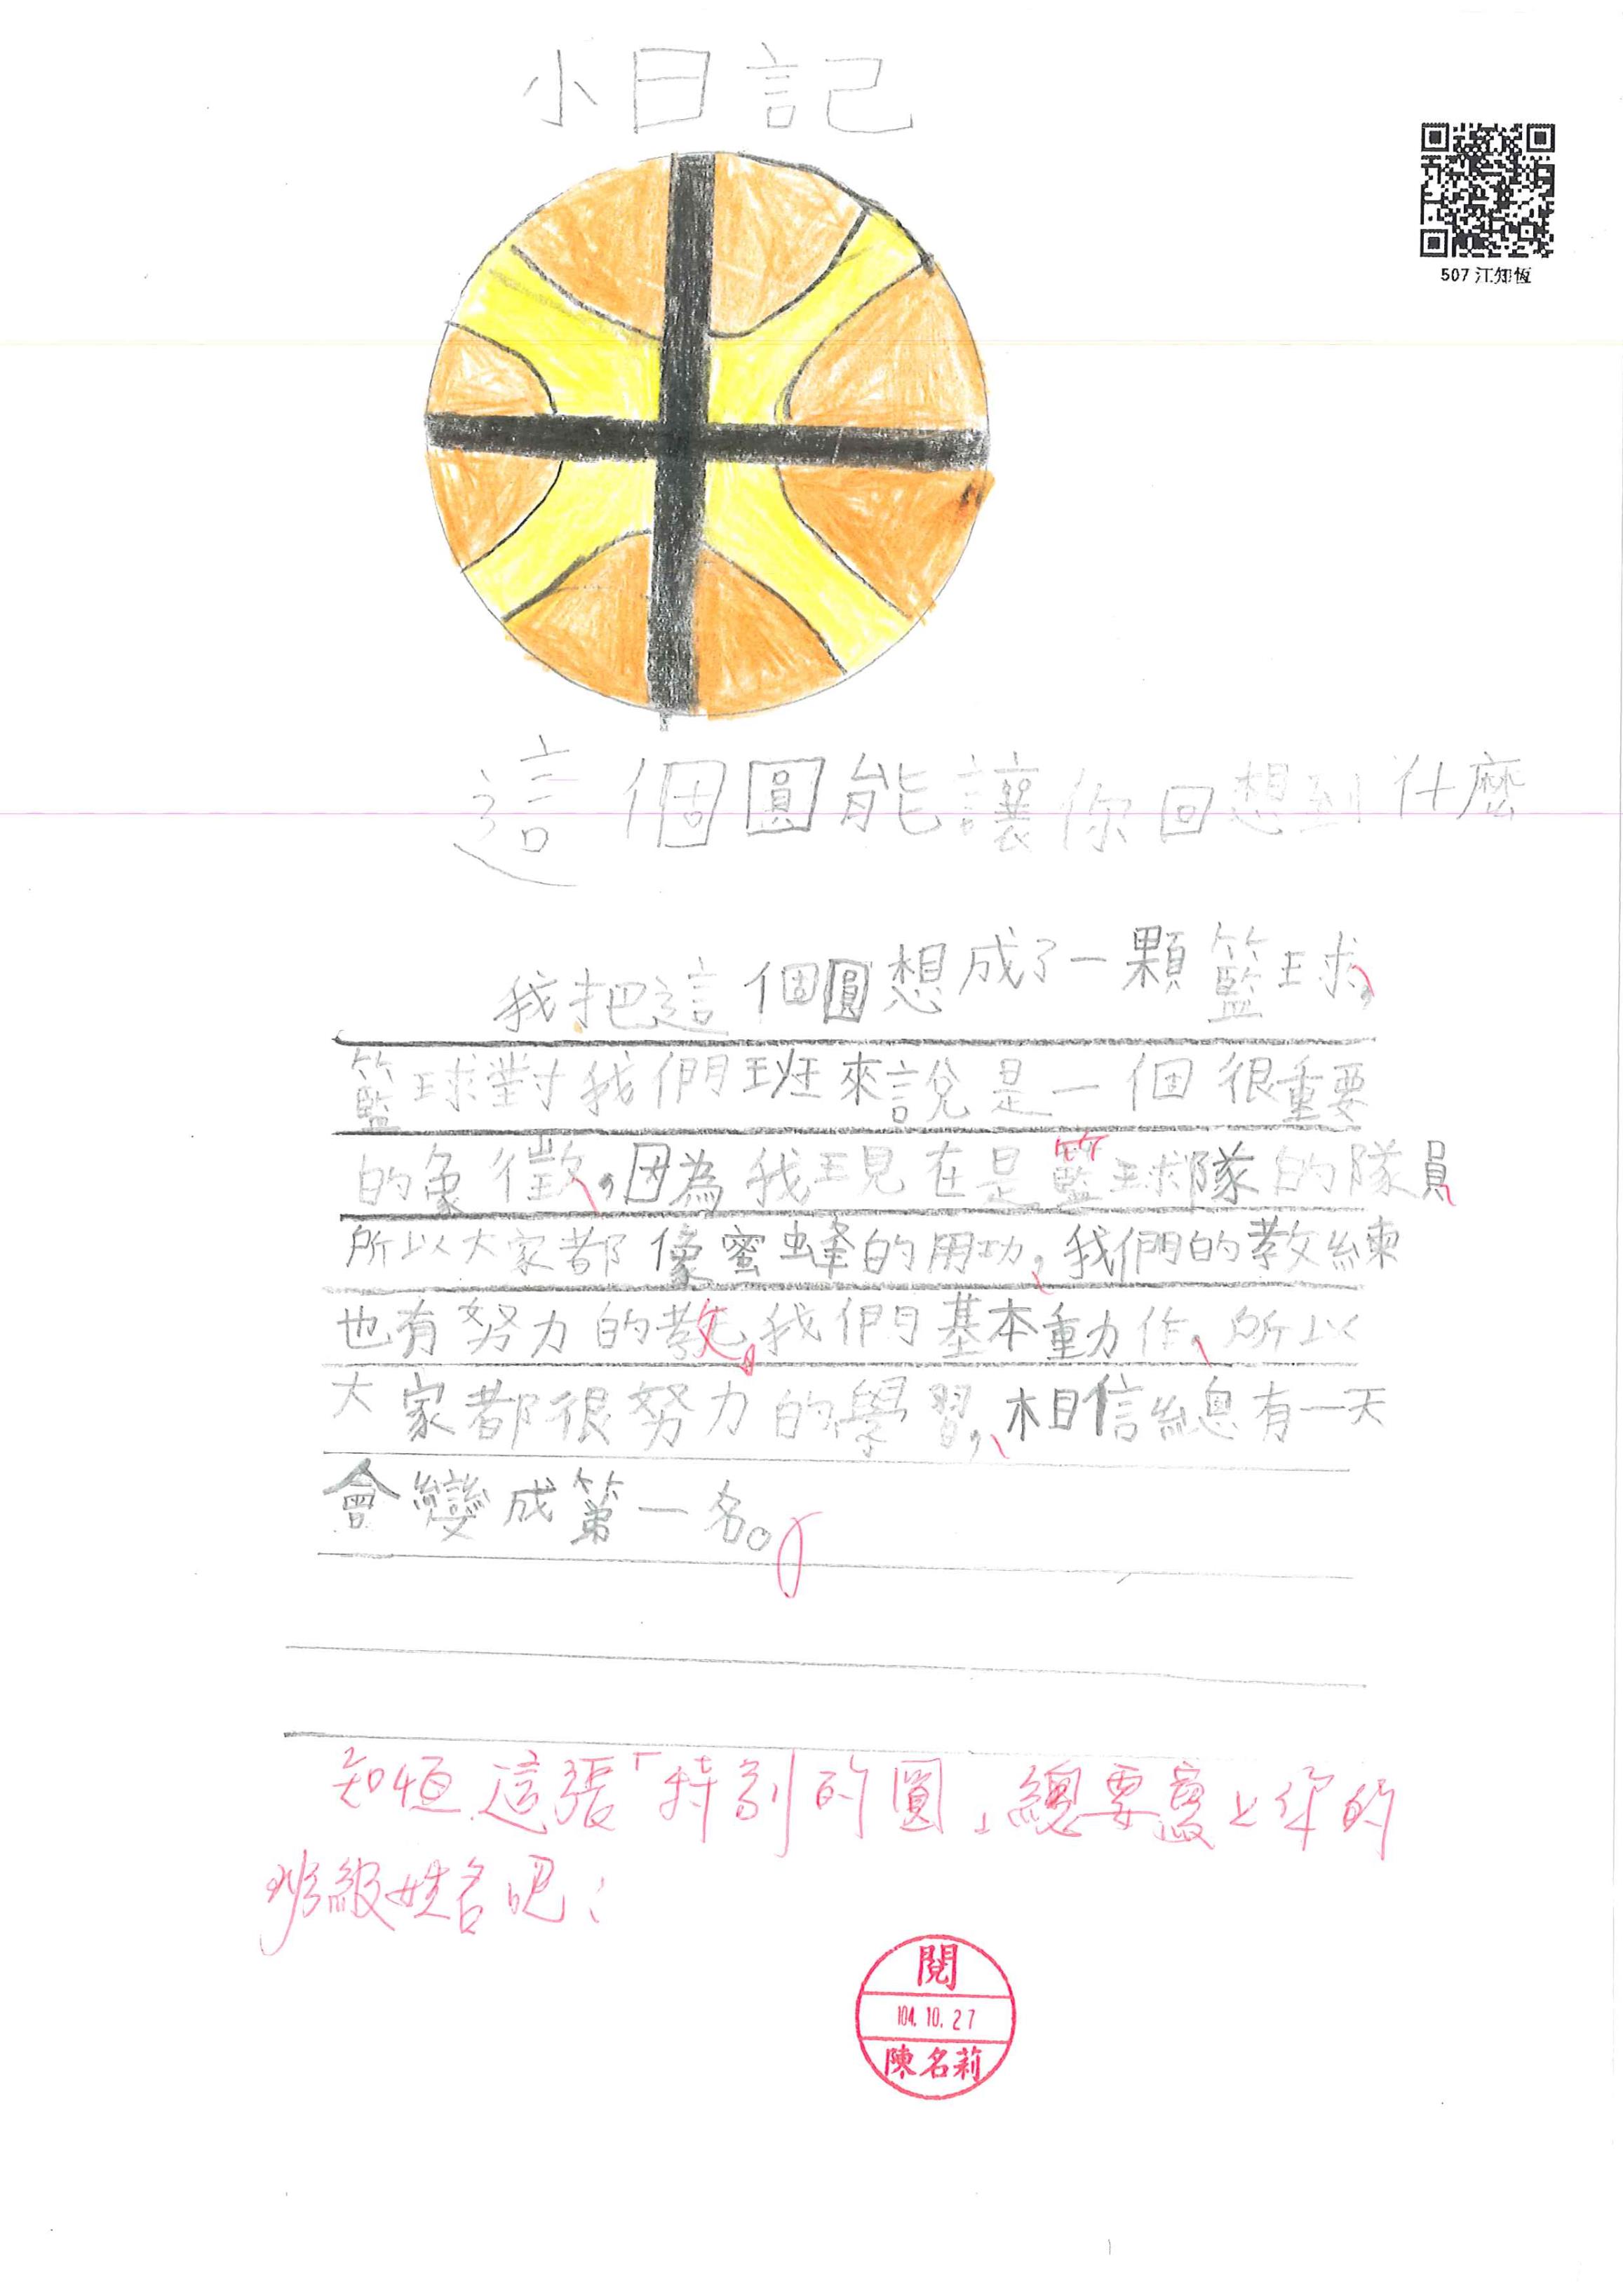 小日記
507 江知恆
這個圓能讓你回想到什麼
我把這個圓想成了一顆籃球,
籃球對我們班來說是一個很重要
的象徵,因為我現在是籃球隊的隊員,
所以大家都像蜜蜂的用功,我們的教練
也有努力的教。我們基本動作,所以
大家都很努力的學習,相信總有一天
會變成第一名。
知恆,這張「特別的圓」總要寫上你的
班級姓名吧!
閱
104.10.27
陳名莉